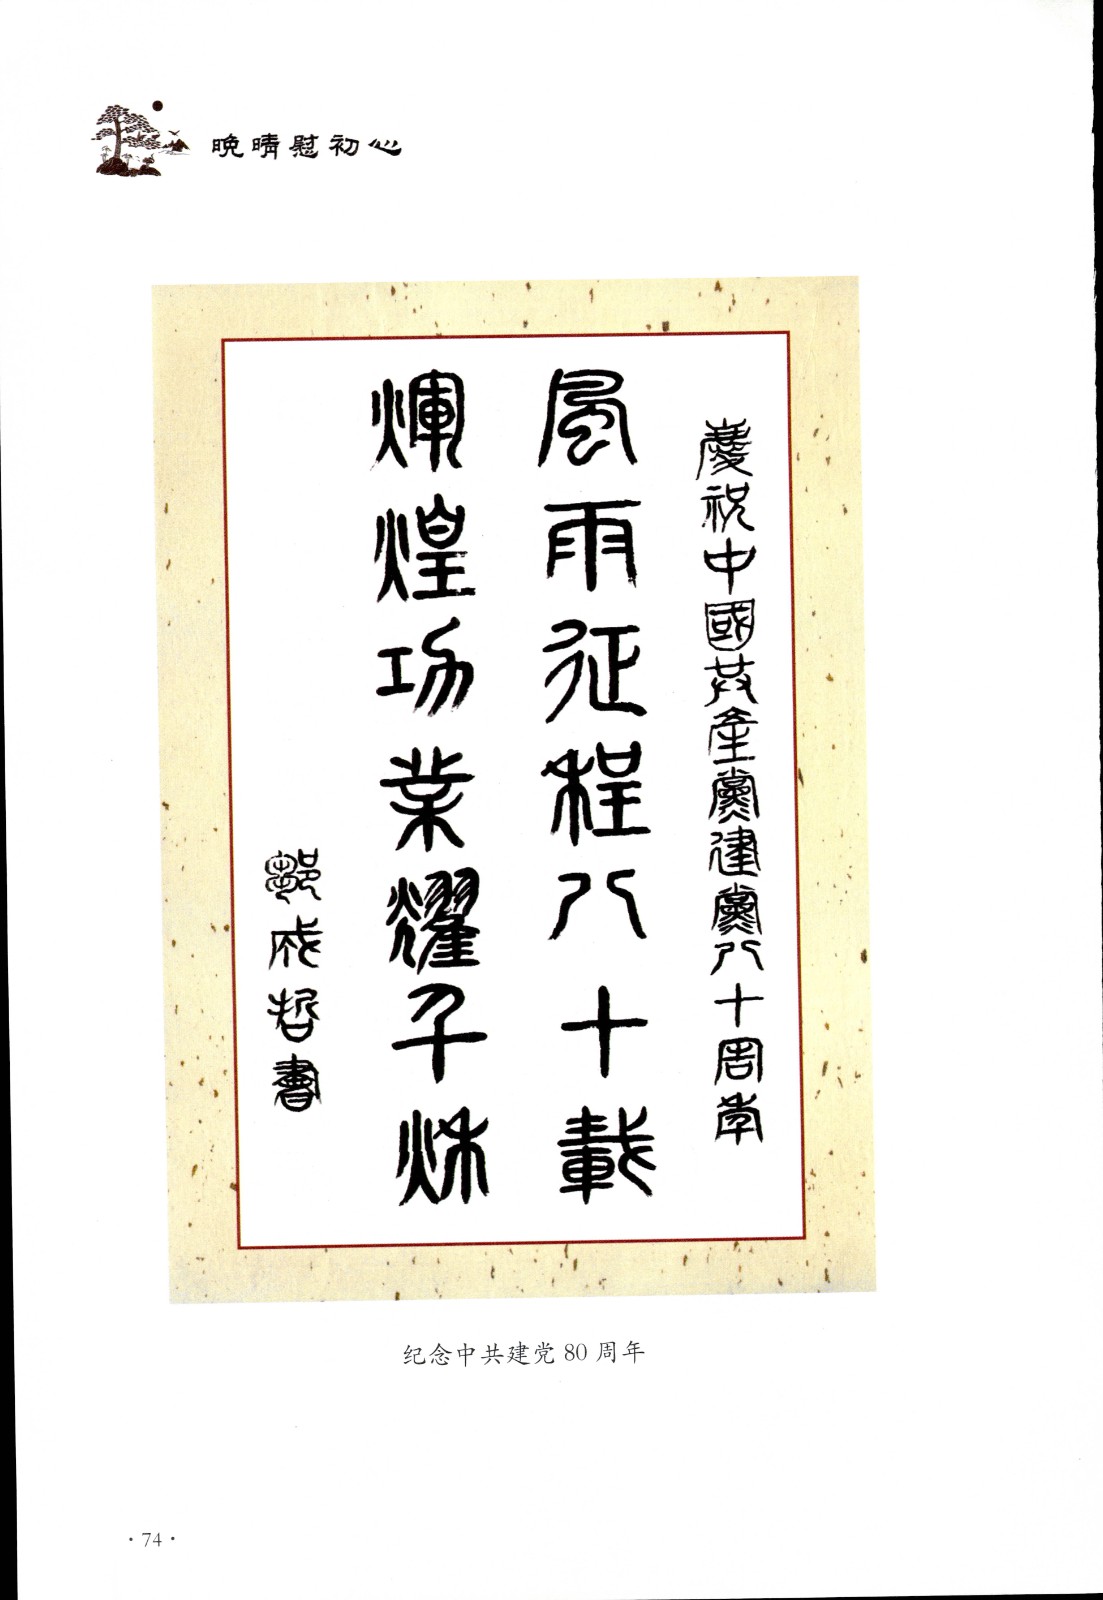 晚晴慰初心
慶祝中國共產黨建黨八十周年
風雨征程八十載
輝煌功業耀千秋
鄒成哲書
纪念中共建党 80 周年
·74·